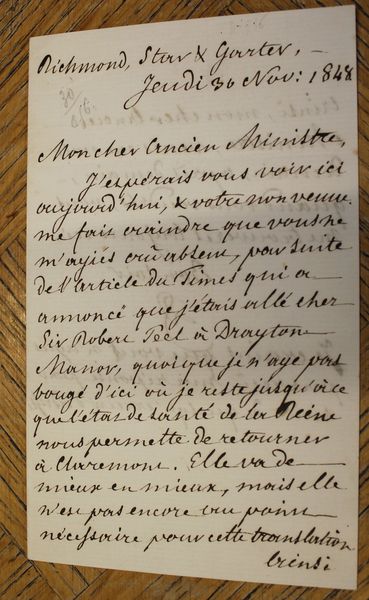 Richmond, Star & Garter, –
Jeudi 30 Nov: 1848
30
16.
Mon cher Ancien Ministre,
J'espérais vous voir ici
aujourd'hui, & votre non venue
me fait craindre que vous ne
m'ayiés crû absent, par suite
de l'article du Times qui a
annoncé que j'étais allé chez
Sir Robert Peel à Drayton
Manor, quoique je n'aye pas
bougé d'ici où je reste jusqu'à ce
que l'état de santé de la Reine
nous permette de retourner
à Claremont. Elle va de
mieux en mieux, mais elle
n'en pas encore au point
nécessaire pour cette translation